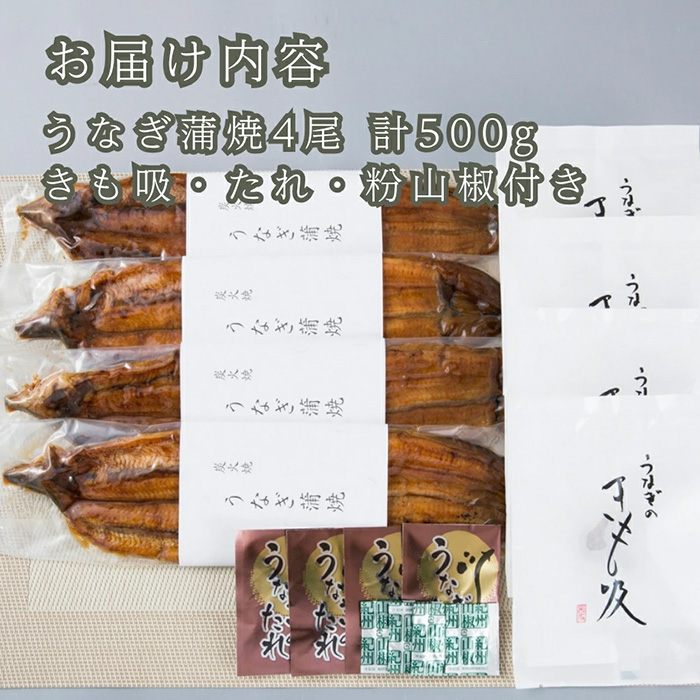 お届け内容
うなぎ蒲焼4尾 計500g
きも吸・たれ・粉山椒付き
炭火焼
うなぎ蒲焼
炭火焼
うなぎ蒲焼
炭火焼
うなぎ蒲焼
炭火焼
うなぎ蒲焼
うなぎ
うなぎ
うなぎ
うなぎの
きも吸
うなぎ
たれ
うなぎ
たれ
うなぎ
うなぎ